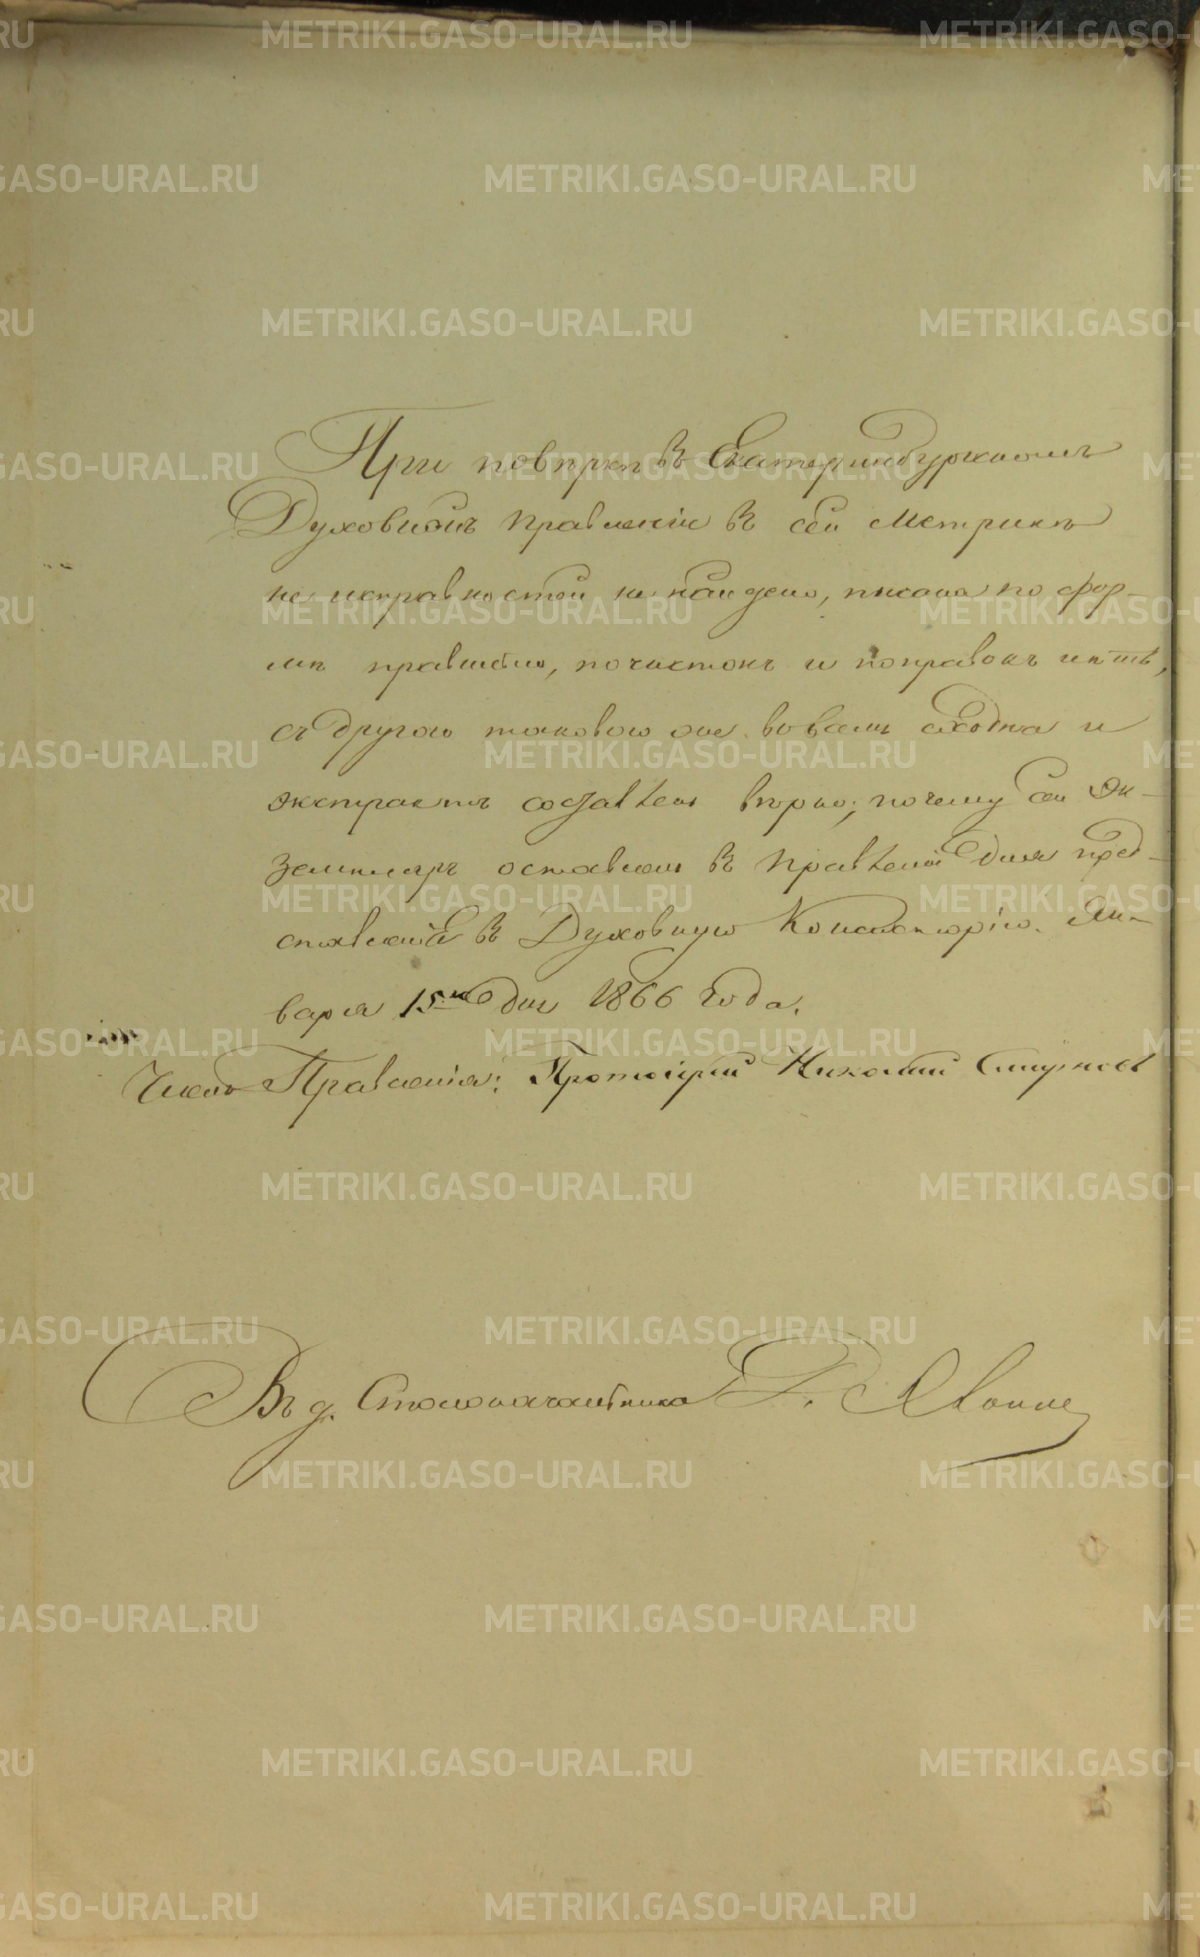 При повѣркѣ въ Екатеринбургскомъ
Духовномъ Правленіи въ сей метрикѣ
не исправностей не найдено, писана по фор-
мѣ правильно, почистокъ и поправокъ нѣтъ,
съ другою таковою же во всемъ сходна и
экстрактъ составленъ вѣрно; почему сей Эк-
земпляръ оставленъ въ Правленіи для пред-
ставленія въ Духовную Консисторію. Ян-
варя 15 дня 1866 года.
Членъ Правленія: Протоіерей Николай Смирнов
Въ д. Столоначальника
METRIKI.GASO-URAL.RU